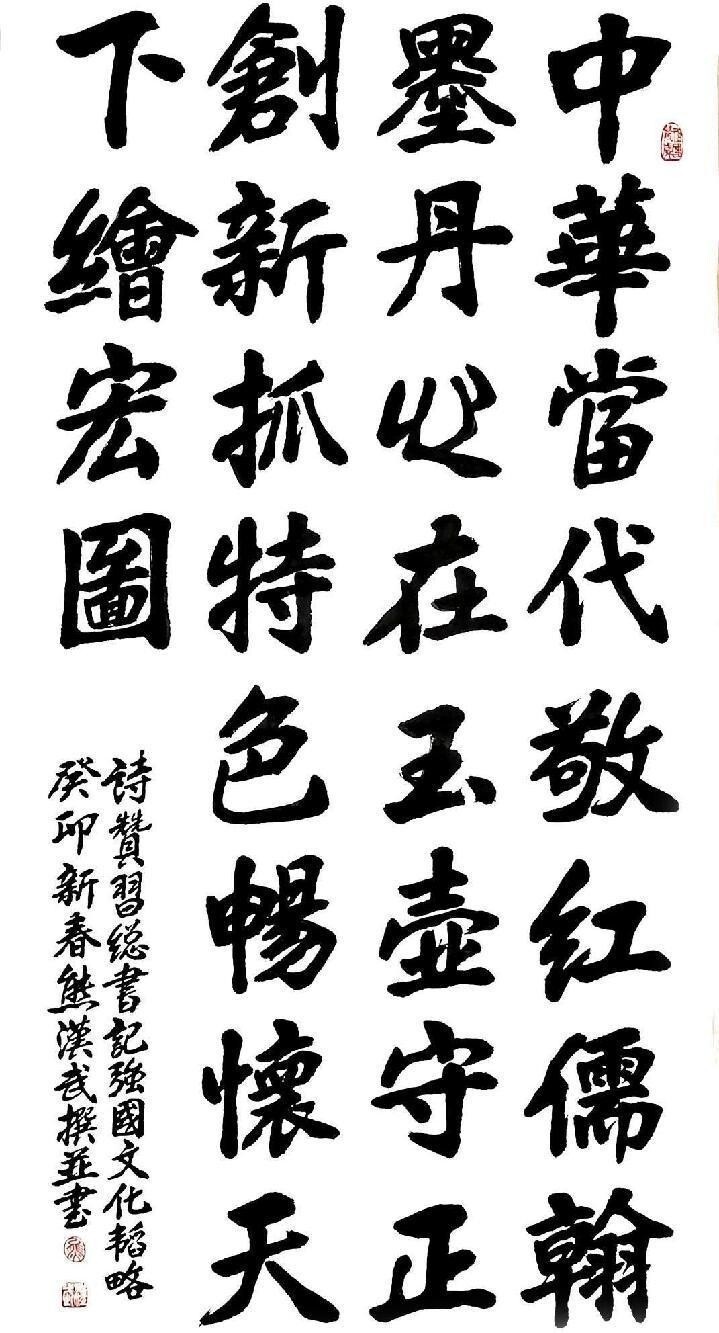 中華當代敬红儒翰
墨丹心在玉壺守正
創新抓特色暢懷天
下繪宏圖
詩贊習総書記強國文化韜略
癸卯新春熊漢武撰並書